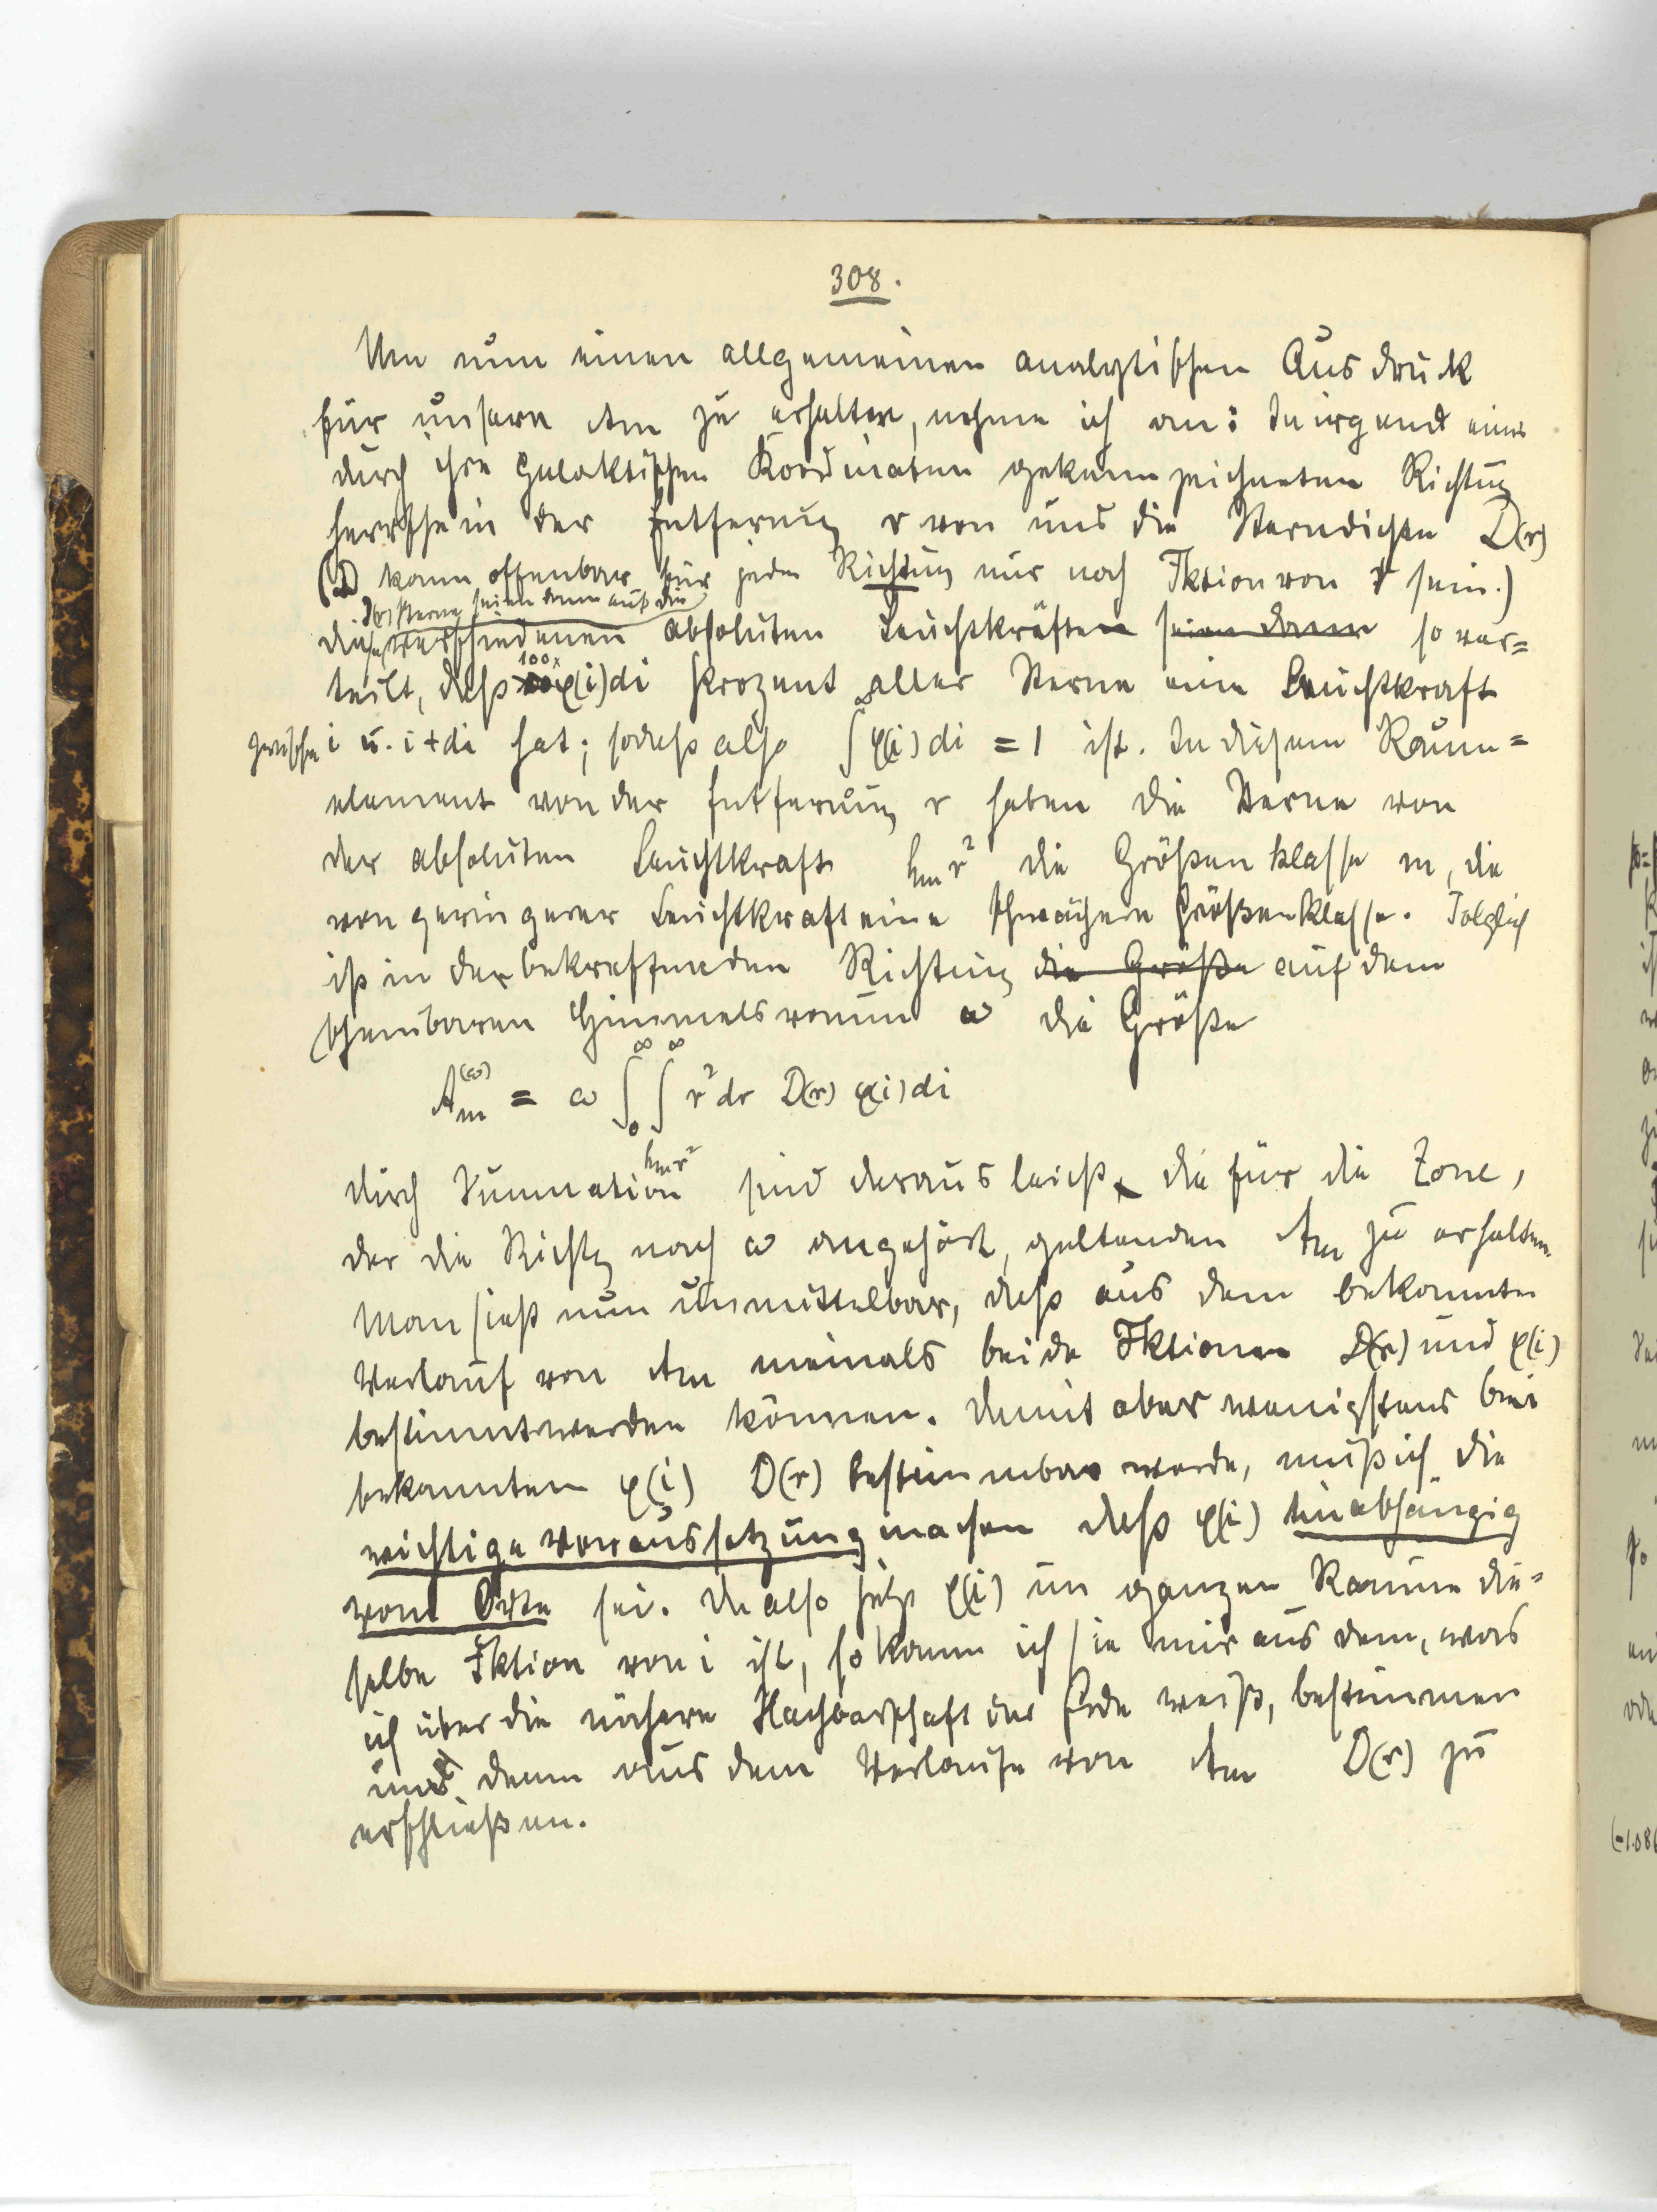 308.
Um nun einen allgemeinen analytischen Ausdruck
für unsere Am zu erhalten, nehme ich an: In irgend einer
durch ihre galaktischen Koordinaten gekennzeichneten Richtung
herrsche in der Entfernung r von uns die Sterndichte D(r)
(D kann offenbar für jede Richtung nur noch Fktion von r sein.)
D(r) Sterne seien dann auf die
diese verschiedenen absoluten Leuchtkräften seien dann so ver=
teilt, daß 100x φ(i)di Prozent aller Sterne eine Leuchtkraft
zwischen i u. i+di hat; sodaß also ∫^∞ φ(i)di = 1 ist. In diesem Raum=
element von der Entfernung r haben die Sterne von
der absoluten Leuchtkraft hm r² die Größenklasse m, die
von geringerer Leuchtkraft eine schwächere Größenklasse. Folglich
ist in der betreffenden Richtung die Größe auf dem
scheinbaren Himmelsraum ω die Größe
A_m^(ω) = ω ∫_0^∞ ∫_{hm r²}^∞ r² dr D(r) φ(i)di
durch Summation sind daraus leicht die für die Zone,
der die Richtg nach ω angehört, geltenden Am zu erhalten.
Man sieht nun unmittelbar, daß aus dem bekannten
Verlauf von Am niemals beide Fktionen D(r) und φ(i)
bestimmt werden können. Damit aber wenigstens bei
bekanntem φ(i) D(r) bestimmbar werde, muß ich die
wichtige Voraussetzung machen daß φ(i) unabhängig
vom Orte sei. Da also jetzt φ(i) im ganzen Raume die=
selbe Fktion von i ist, so kann ich sie mir aus dem, was
ich über die nähere Nachbarschaft der Erde weiß, bestimmen
und dann aus dem Verlaufe von Am D(r) zu
erschließen.